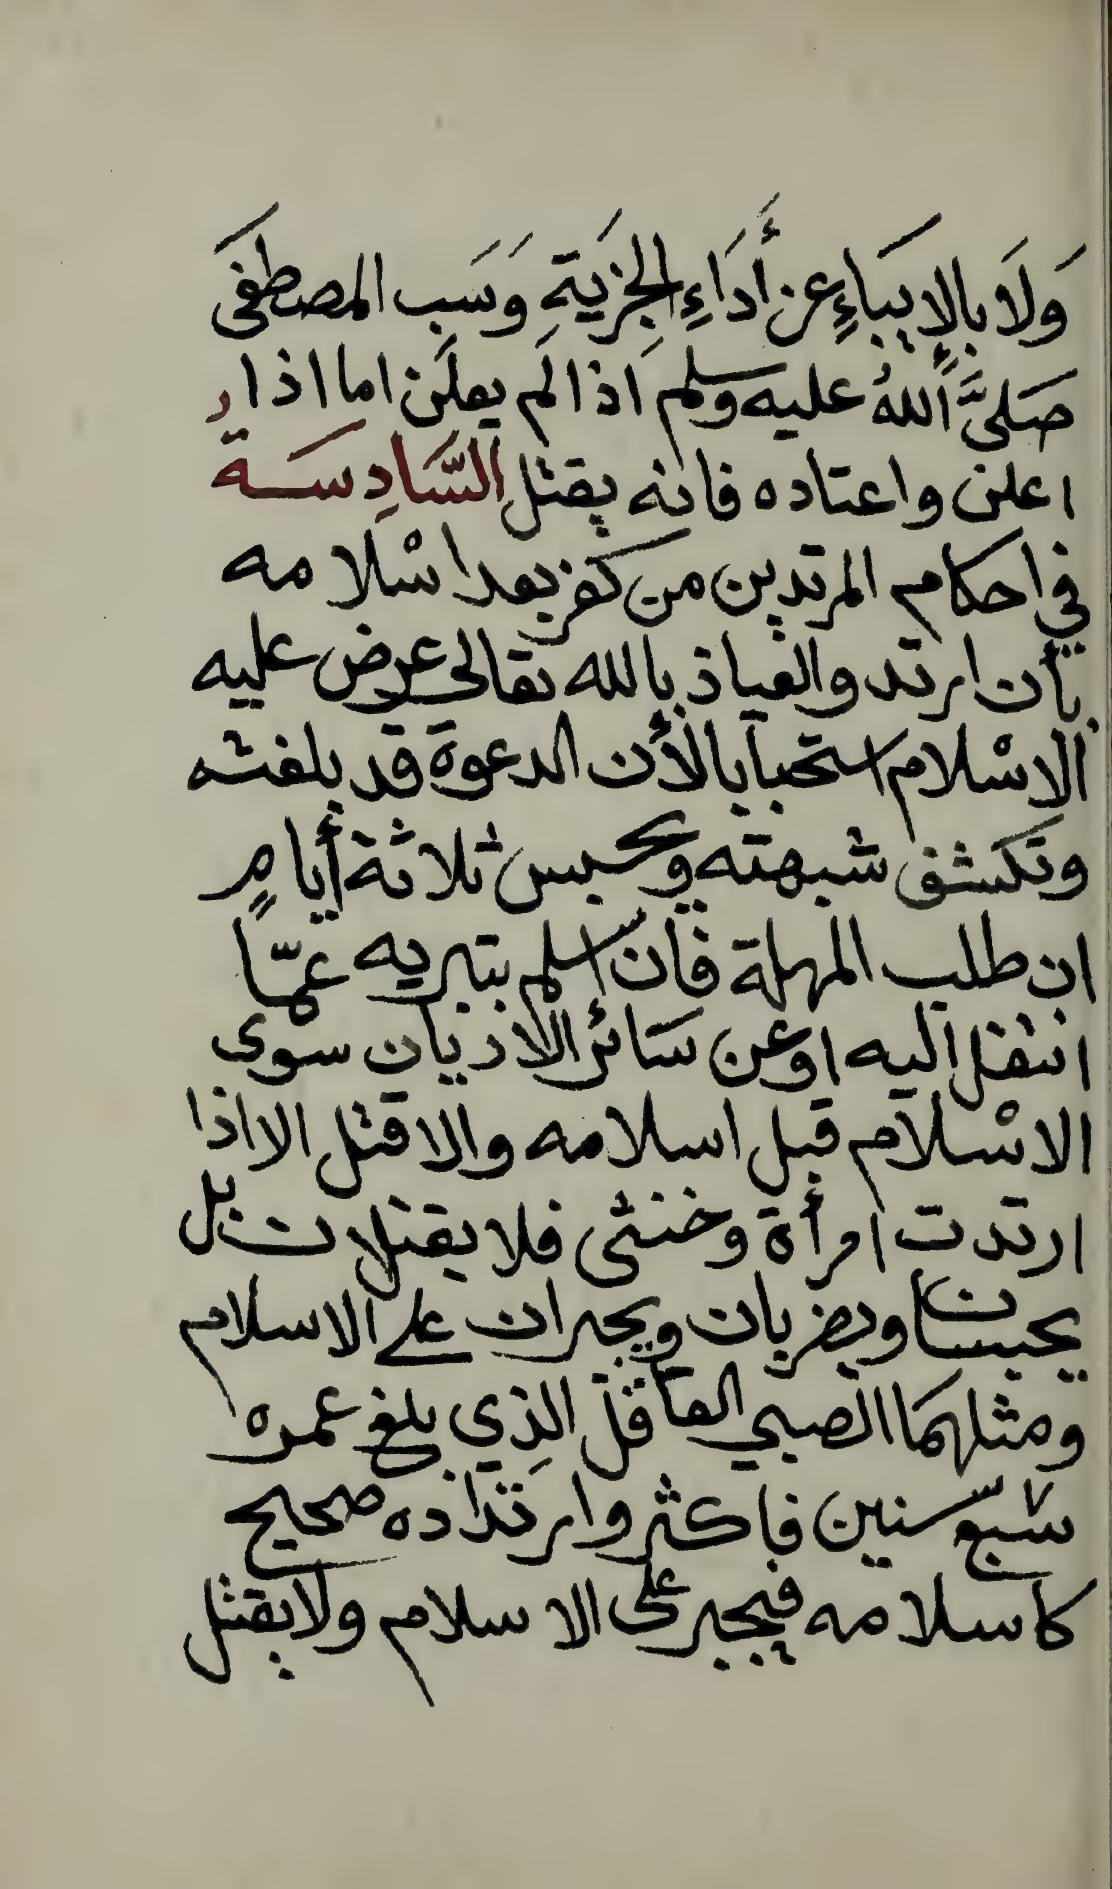 وَلَا بِالإِيبَاءِ عن أَدَاءِ الجِزْيَةِ وَسَب المصطفَى
صَلىَّ اللهُ عليه وسلم اذا لم يعلَن اما اذا
اعلن واعتاده فانه يقتل السَّادِسَة
في احكام المرتدين من كفر بعد اسْلامه
بأن ارتد والعياذ بالله تعالى عرض عليه
الاسْلام استحبابا لأن الدعوة قد بلغته
وتكشف شبهته ويحبس ثلاثة أيامٍ
ان طلب المهلة فان اسلم بتبريه عمّا
انتقل اليه اوعن سَائر الاديان سوى
الاسْلام قبل اسلامه والا قتل الا اذا
ارتدت امرأة وخنثى فلا يقتلان بل
يحبسان ويضربان ويجبران على الاسلام
ومثلهمَا الصبي العاقل الذِي بلغ عمره
سَبع سنين فاكثر وارتداده صحيح
كاسلامه فيجبر على الاسلام ولا يقتل